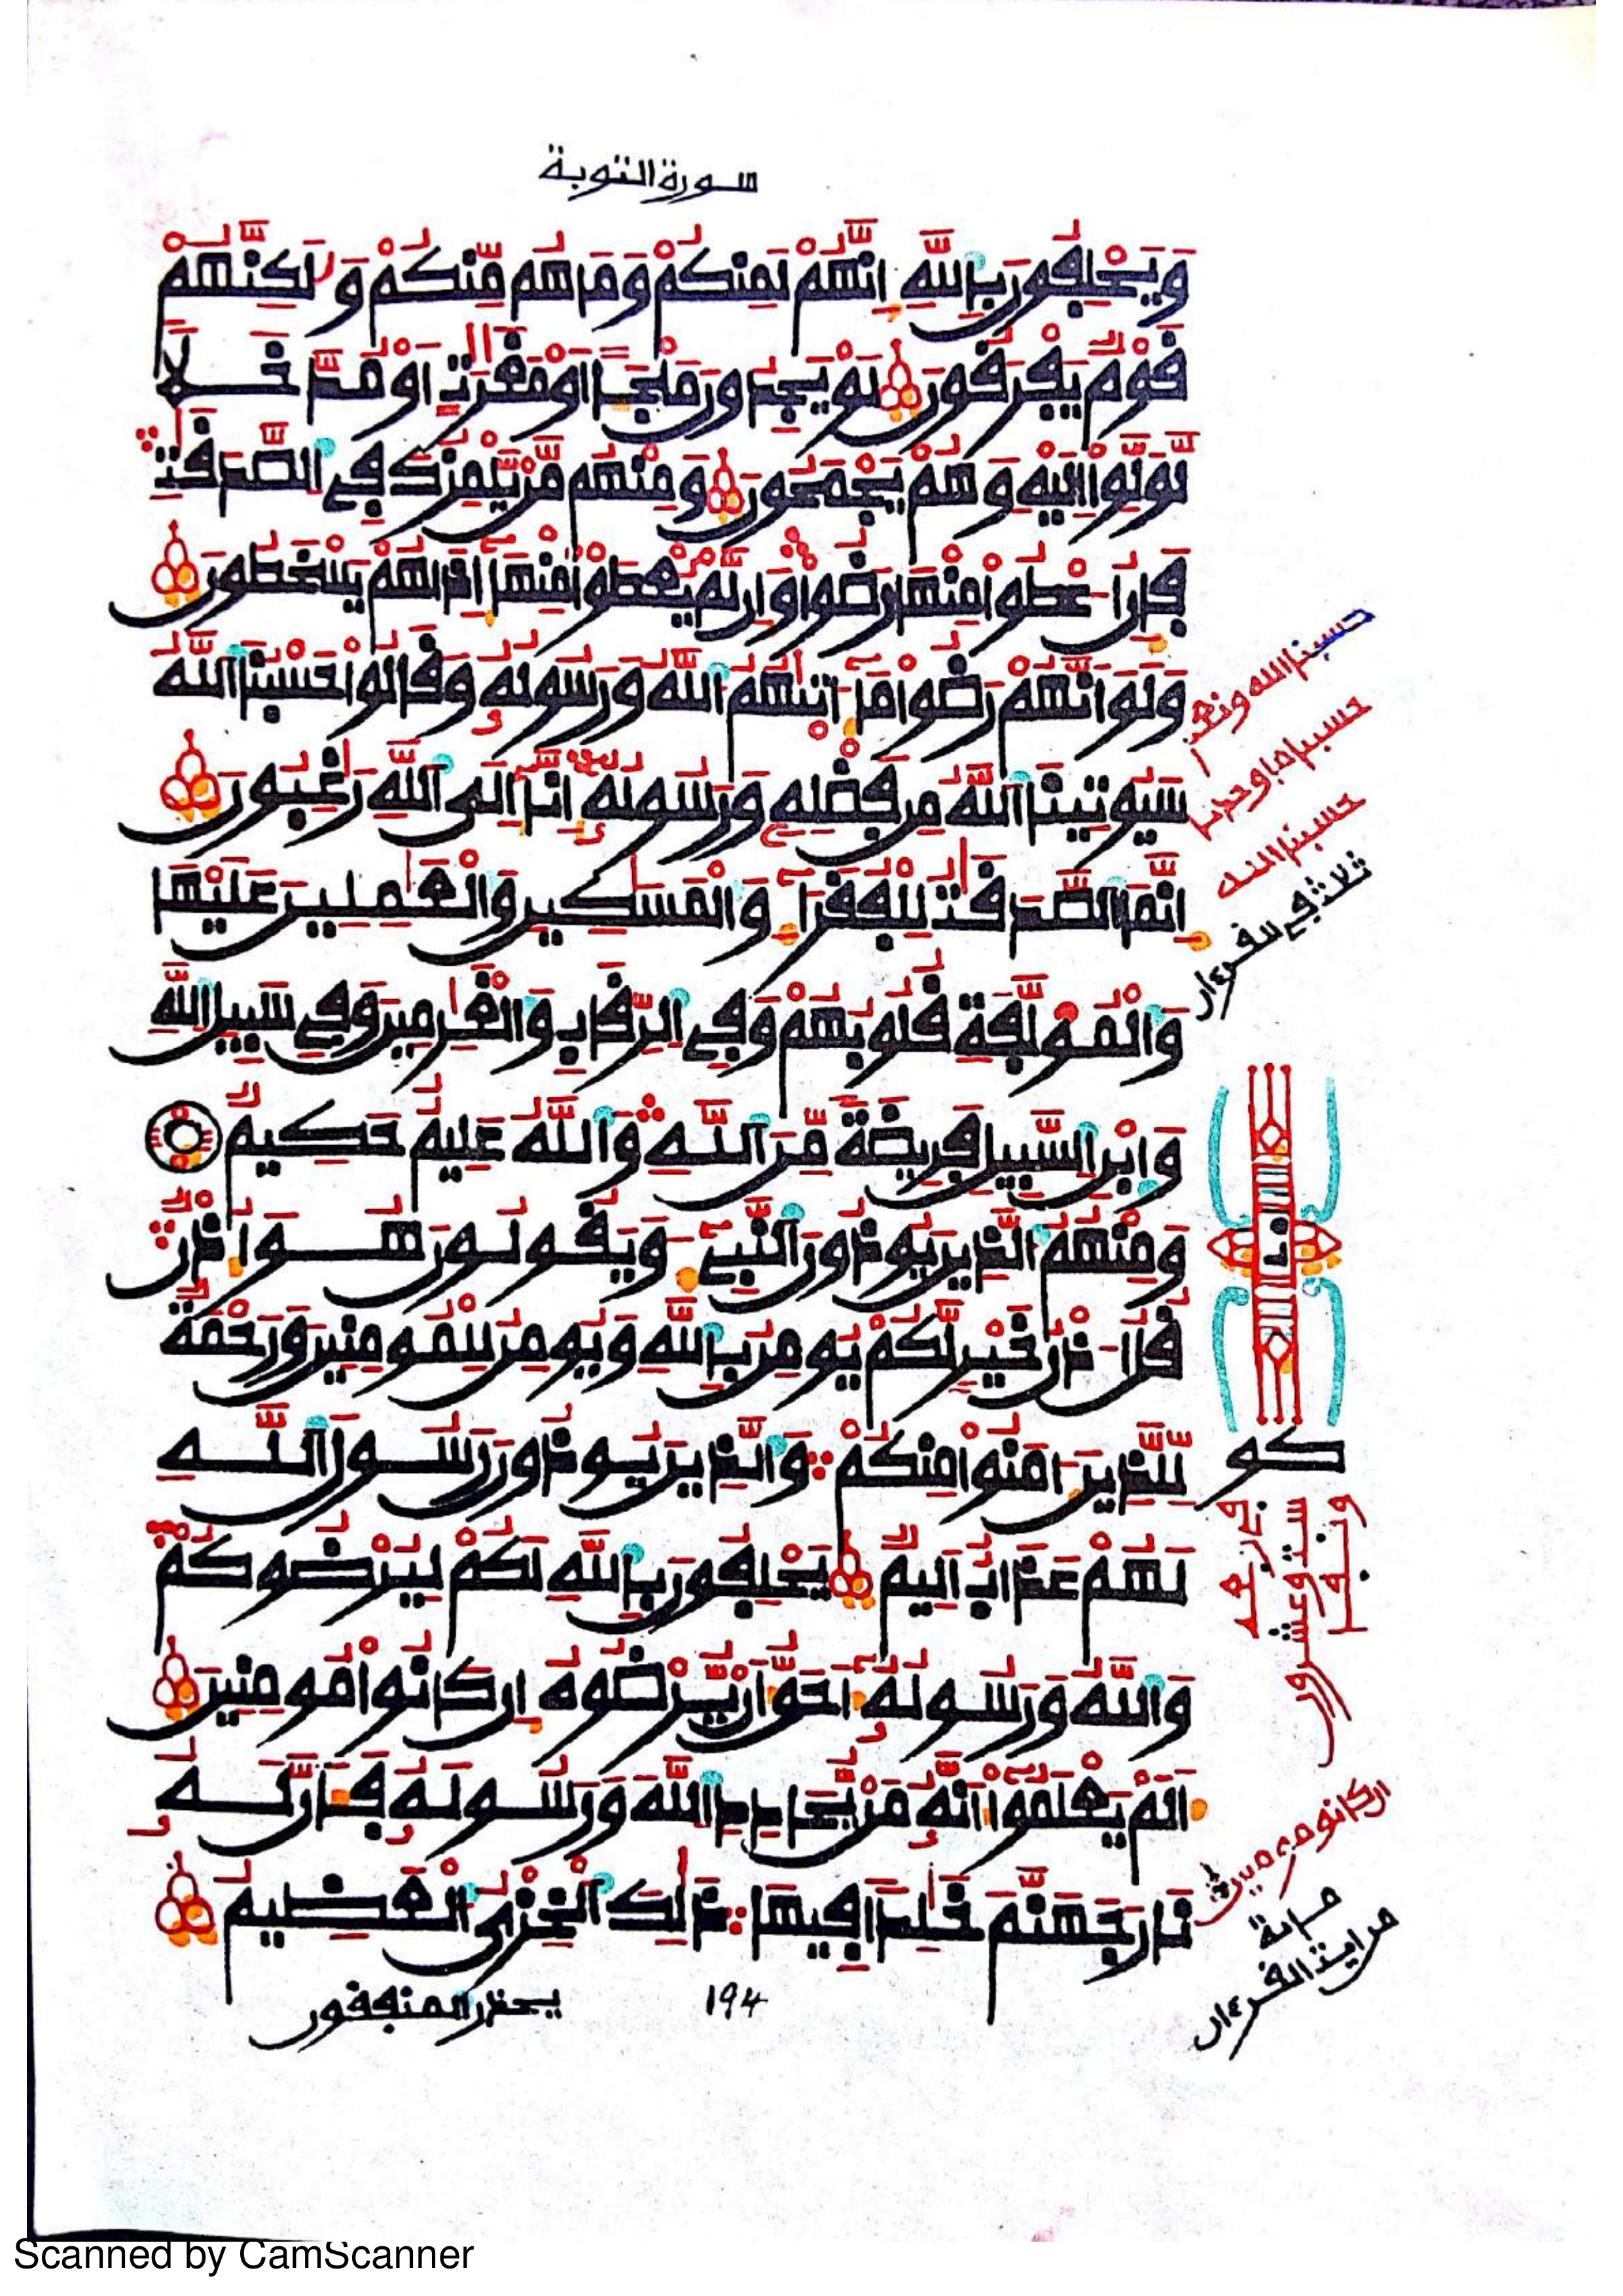 سورة التوبة
وَيَحْلِفُونَ بِاللَّهِ إِنَّهُمْ لَمِنكُمْ وَمَا هُم مِّنكُمْ وَلَٰكِنَّهُمْ
قَوْمٌ يَفْرَقُونَ لَوْ يَجِدُونَ مَلْجَـًٔا اَوْ مَغَٰرَٰتٍ اَوْ مُدَّخَلًا
لَّوَلَّوِاْ اِلَيْهِ وَهُمْ يَجْمَحُونَ وَمِنْهُم مَّنْ يَّلْمِزُكَ فِي الصَّدَقَٰتِ
فَإِنُ ا۟عْطُواْ مِنْهَا رَضُواْ وَإِن لَّمْ يُعْطَوْاْ مِنْهَآ إِذَا هُمْ يَسْخَطُونَ
وَلَوَ اَنَّهُمْ رَضُواْ مَآ ءَاتٜىٰهُمُ اللَّهُ وَرَسُولُهُۥ وَقَالُواْ حَسْبُنَا اللَّهُ
سَيُوتِينَا اللَّهُ مِن فَضْلِهِۦ وَرَسُولُهُۥٓ إِنَّآ إِلَى اللَّهِ رَٰغِبُونَ
إِنَّمَا الصَّدَقَٰتُ لِلْفُقَرَآءِ وَالْمَسَٰكِينِ وَالْعَٰمِلِينَ عَلَيْهَا
وَالْمُؤَلَّفَةِ قُلُوبُهُمْ وَفِي الرِّقَابِ وَالْغَٰرِمِينَ وَفِي سَبِيلِ اللَّهِ
وَابْنِ السَّبِيلِ فَرِيضَةً مِّنَ اللَّهِ وَاللَّهُ عَلِيمٌ حَكِيمٌ
وَمِنْهُمُ الَّذِينَ يُوذُونَ النَّبِيٓءَ وَيَقُولُونَ هُوَ أُذْنٌ
قُلُ ا۟ذْنُ خَيْرٍ لَّكُمْ يُومِنُ بِاللَّهِ وَيُومِنُ لِلْمُومِنِينَ وَرَحْمَةٌ
لِّلَّذِينَ ءَامَنُواْ مِنكُمْ وَالَّذِينَ يُوذُونَ رَسُولَ اللَّهِ
لَهُمْ عَذَابٌ اَلِيمٌ يَحْلِفُونَ بِاللَّهِ لَكُمْ لِيُرْضُوكُمْ
وَاللَّهُ وَرَسُولُهُۥٓ أَحَقُّ أَنْ يُّرْضُوهُ إِن كَانُواْ مُومِنِينَ
أَلَمْ يَعْلَمُوٓاْ أَنَّهُۥ مَنْ يُّحَادِدِ اللَّهَ وَرَسُولَهُۥ فَأَنَّ لَهُۥ
نَارَ جَهَنَّمَ خَٰلِدًا فِيهَا ذَٰلِكَ الْخِزْيُ الْعَظِيمُ
194
يحذر المنفقون
حسبنا الله ونعم
حسبنا ما وجدنا
حسبنا الله
ثلاث في القرءان
ان كانوا مومنين
من اية القرءان
Scanned by CamScanner